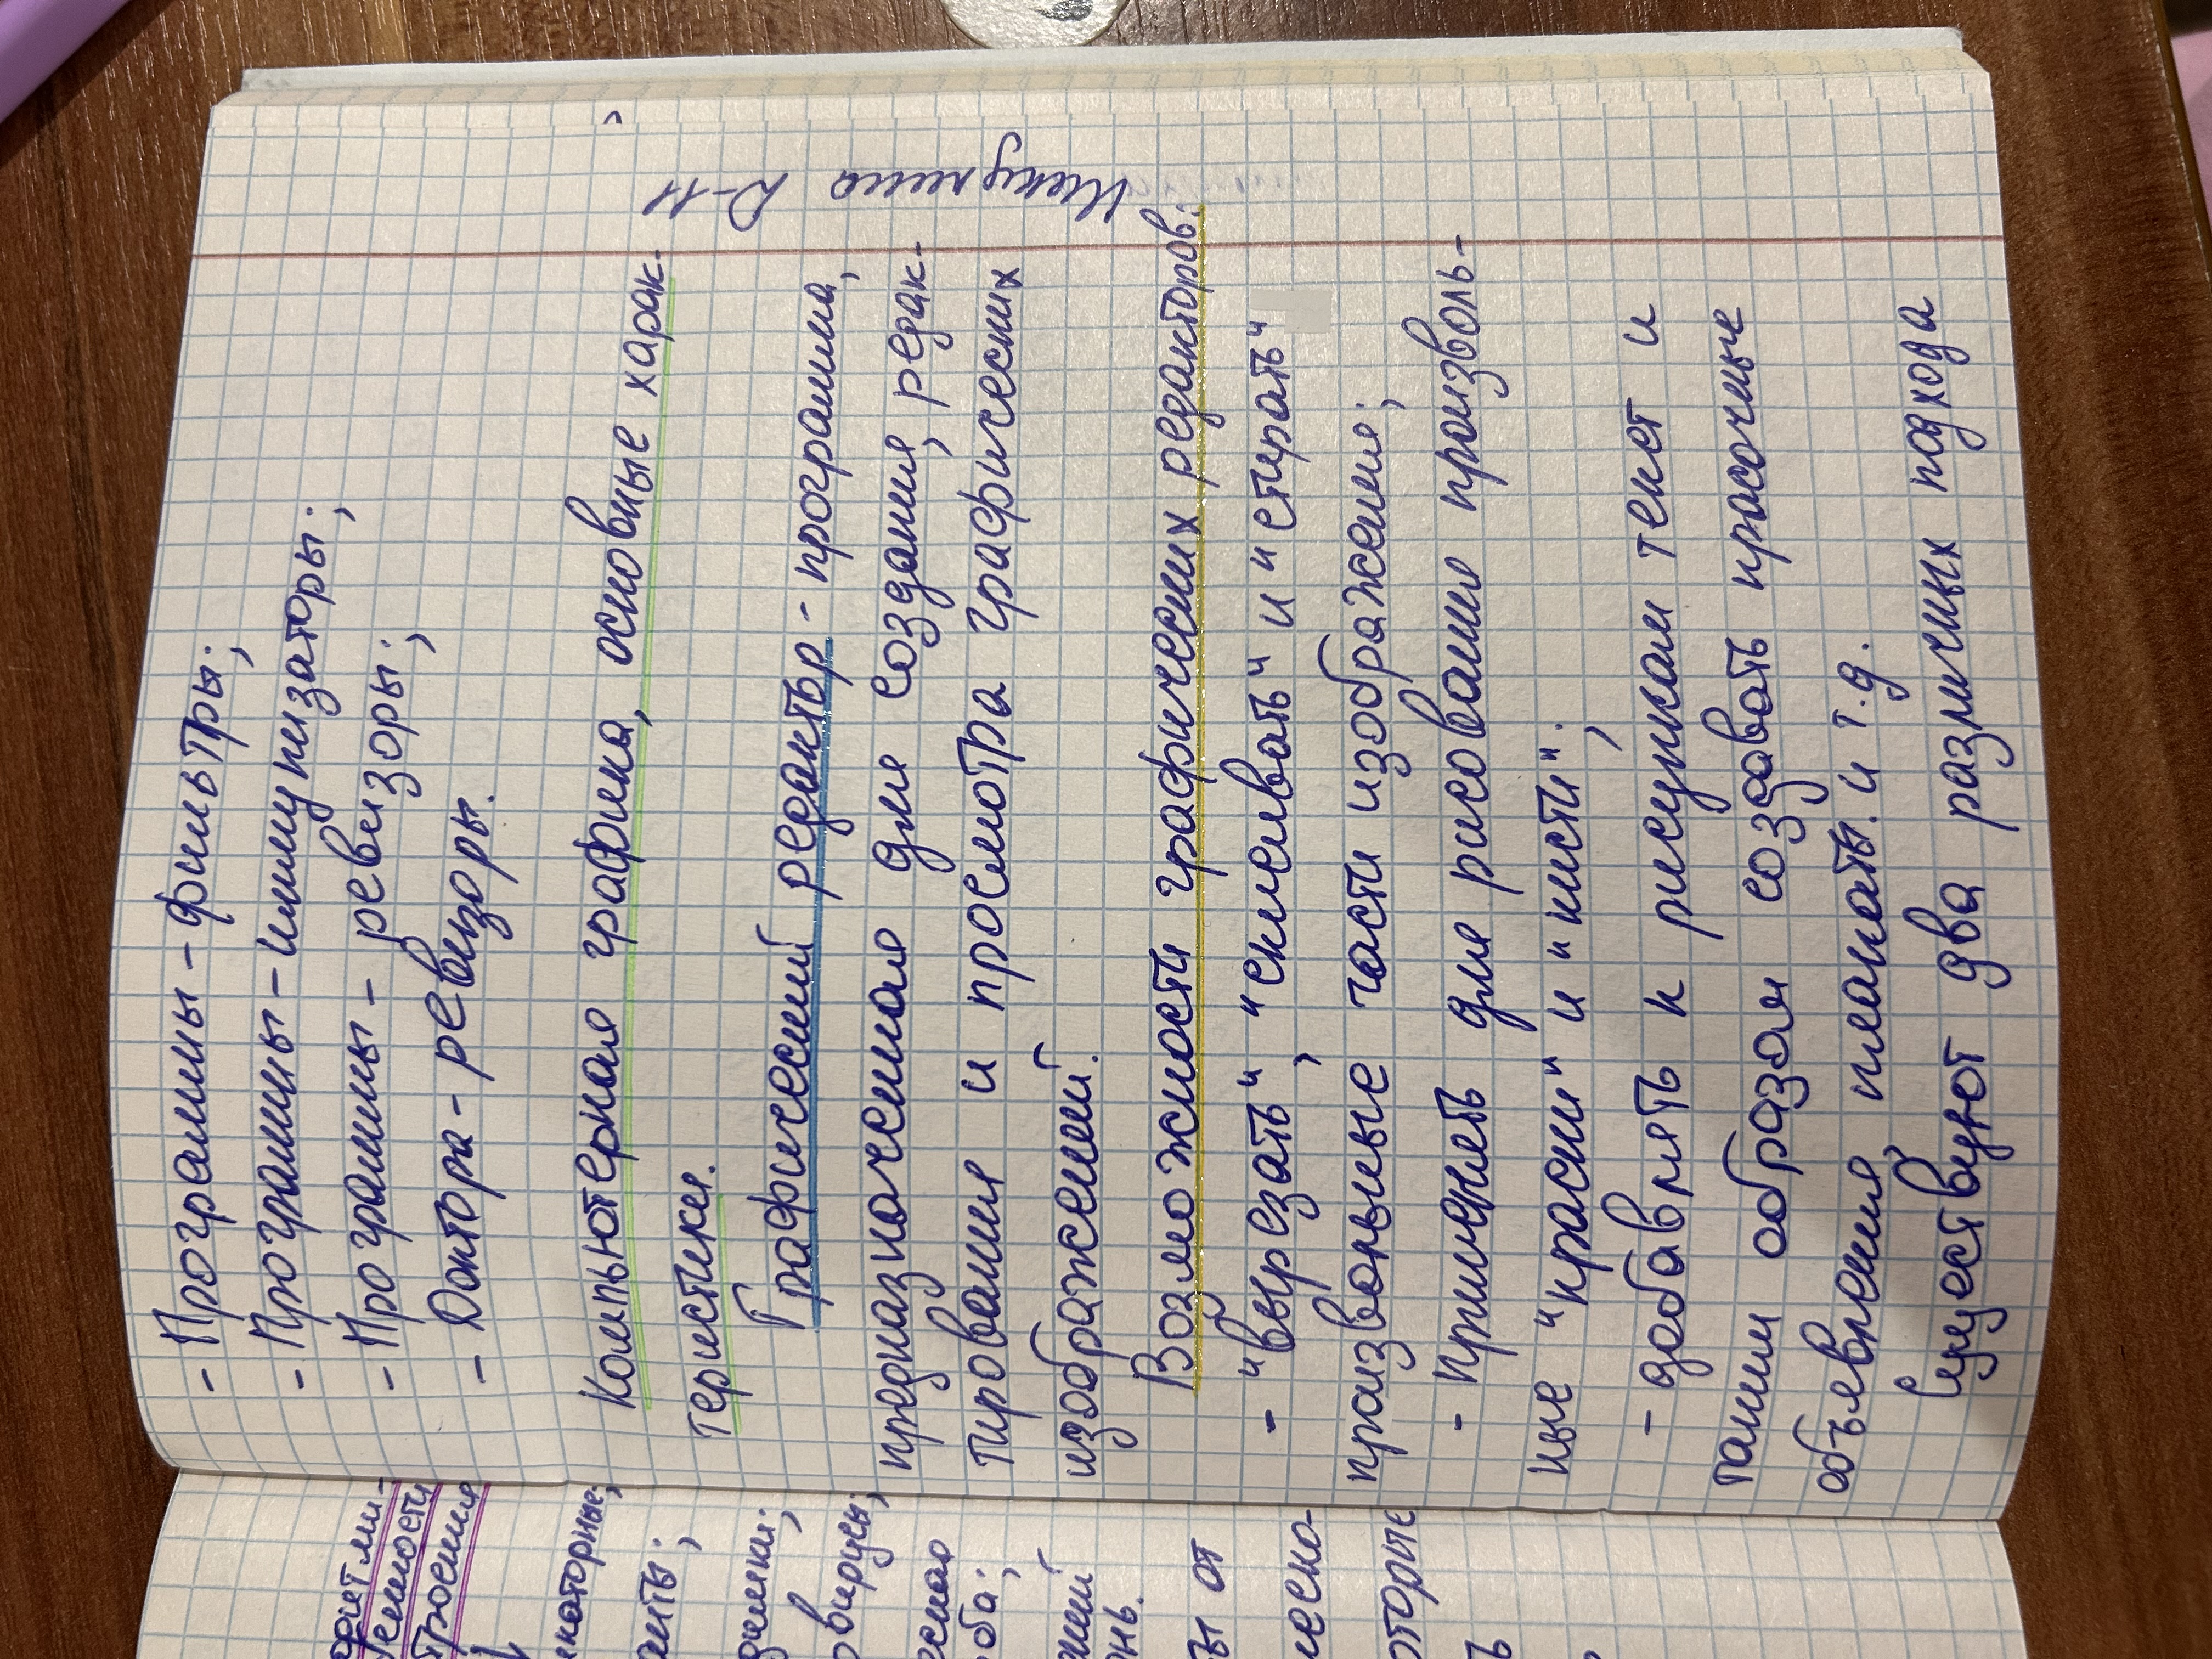 - Программы - фильтры;
- Программы - иммунизаторы;
- Программы - ревизоры;
- Доктора - ревизоры.
Компьютерная графика, основные харак-
теристики.
Графический редактор - программа,
предназначенная для создания, редак-
тирования и просмотра графических
изображений.
Возможности графических редакторов:
- "вырезать", "склеивать" и "стирать"
произвольные части изображения;
- применять для рисования произволь-
ные "краски" и "кисти";
- добавлять к рисункам текст и
таким образом создавать красочные
объявления, плакаты. и т.д.
Существуют два различных подхода
Д-11
екаторные;
анты;
овирусы;
оба;
ы от
оторые